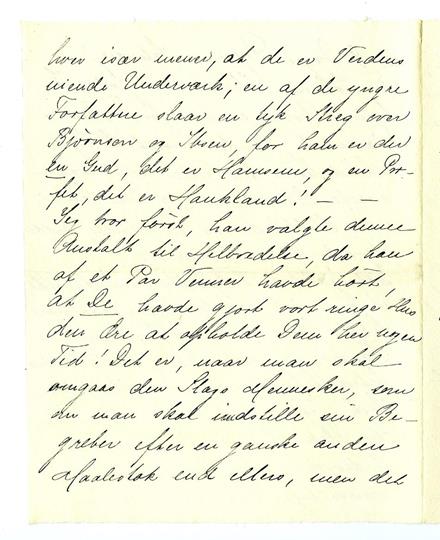 hver især mener, at de er Verdens
niende Underværk; en af de yngre
Forfattere slaar en tyk Streg over
Bjørnson og Ibsen, for ham er der
en Gud, det er Hamsun, og en Pro-
fet, det er Haukland! — —
Jeg tror først, han valgte denne
Anstalt til Helbredelse, da han
af et Par Venner havde hørt,
at De havde gjort vort ringe Hus
den Ære at opholde Dem her nogen
Tid! Det er, naar man skal
omgaas den Slags Mennesker, som
om man skal indstille sin Be-
greber efter en ganske anden
Maalestok end ellers, men det